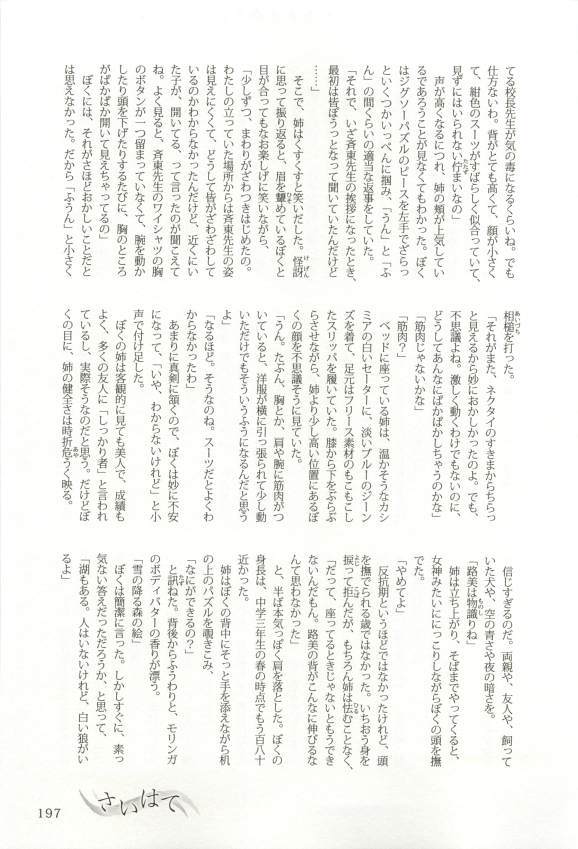 てる校長先生が気の毒になるくらいね。でも
仕方ないわ。背がとても高くて、顔が小さく
て、紺色のスーツがすばらしく似合っていて、
見ずにはいられない佇まいなの」
　声が高くなるにつれ、姉の頬が上気してい
るであろうことが見なくてもわかった。ぼく
はジグソーパズルのピースを左手でさらっ
といくつかいっぺんに掴み、「うん」と「ふ
ん」の間くらいの適当な返事をしていた。
「それで、いざ斉東先生の挨拶になったとき、
最初は皆ぽうっとなって聞いていたんだけど
……」
　そこで、姉はくすくすと笑いだした。怪訝
に思って振り返ると、眉を顰めているぼくと
目が合ってもなお楽しげに笑いながら、
「少しずつ、まわりがざわつきはじめたの。
わたしの立っていた場所からは斉東先生の姿
は見えにくくて、どうして皆がざわざわして
いるのかわからなかったんだけど、近くにい
た子が、開いてる、って言ったのが聞こえて
ね。よく見ると、斉東先生のワイシャツの胸
のボタンが一つ留まっていなくて、腕を動か
したり頭を下げたりするたびに、胸のところ
がぱかぱか開いて見えちゃってるの」
　ぼくには、それがさほどおかしいことだと
は思えなかった。だから「ふうん」と小さく
相槌を打った。
「それがまた、ネクタイのすきまからちらっ
と見えるから妙におかしかったのよ。でも、
不思議よね。激しく動くわけでもないのに、
どうしてあんなにぱかぱかしちゃうのかな」
「筋肉じゃないかな」
「筋肉？」
　ベッドに座っている姉は、温かそうなカシ
ミアの白いセーターに、淡いブルーのジーン
ズを着て、足元はフリース素材のもこもこし
たスリッパを履いていた。膝から下をぶらぶ
らさせながら、姉より少し高い位置にあるぼ
くの顔を不思議そうに見ていた。
「うん。たぶん、胸とか、肩や腕に筋肉がつ
いていると、洋服が横に引っ張られて少し動
いただけでもそういうふうになるんだと思う
よ」
「なるほど。そうなのね。スーツだとよくわ
からなかったわ」
　あまりに真剣に頷くので、ぼくは妙に不安
になって、「いや、わからないけれど」と小
声で付け足した。
　ぼくの姉は客観的に見ても美人で、成績も
よく、多くの友人に「しっかり者」と言われ
ているし、実際そうなのだと思う。だけどぼ
くの目に、姉の健全さは時折危うく映る。
　信じすぎるのだ。両親や、友人や、飼って
いた犬や、空の青さや夜の暗さを。
「路美は物識りね」
　姉は立ち上がり、そばまでやってくると、
女神みたいににっこりしながらぼくの頭を撫
でた。
「やめてよ」
　反抗期というほどではなかったけれど、頭
を撫でられる歳ではなかった。いちおう身を
捩って拒んだが、もちろん姉は怯むことなく、
「だって、座ってるときじゃないともうでき
ないんだもん。路美の背がこんなに伸びるな
んて思わなかった」
　と、半ば本気っぽく肩を落とした。ぼくの
身長は、中学三年生の春の時点でもう百八十
近かった。
　姉はぼくの背中にそっと手を添えながら机
の上のパズルを覗きこみ、
「なにができるの？」
　と訊ねた。背後からふうわりと、モリンガ
のボディバターの香りが漂う。
「雪の降る森の絵」
　ぼくは簡潔に言った。しかしすぐに、素っ
気ない答えだっただろうか、と思って、
「湖もある。人はいないけれど、白い狼がい
るよ」
さいはて
197